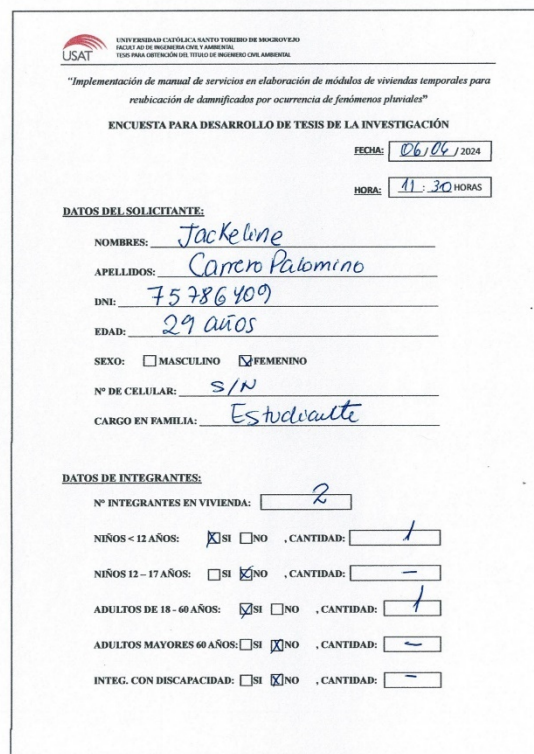 USAT
UNIVERSIDAD CATÓLICA SANTO TORIBIO DE MOGROVEJO
FACULTAD DE INGENIERIA CIVIL Y AMBIENTAL
TESIS PARA OBTENCIÓN DEL TITULO DE INGENIERO CIVIL AMBIENTAL
"Implementación de manual de servicios en elaboración de módulos de viviendas temporales para
reubicación de damnificados por ocurrencia de fenómenos pluviales"
ENCUESTA PARA DESARROLLO DE TESIS DE LA INVESTIGACIÓN
FECHA: 06/04/2024
HORA: 11:30 HORAS
DATOS DEL SOLICITANTE:
NOMBRES: Jackeline
APELLIDOS: Carrero Palomino
DNI: 75786409
EDAD: 29 años
SEXO: ☐ MASCULINO ☒ FEMENINO
N° DE CELULAR: S/N
CARGO EN FAMILIA: Estudiante
DATOS DE INTEGRANTES:
N° INTEGRANTES EN VIVIENDA: 2
NIÑOS < 12 AÑOS: ☒ SI ☐ NO , CANTIDAD: 1
NIÑOS 12 – 17 AÑOS: ☐ SI ☒ NO , CANTIDAD: –
ADULTOS DE 18 - 60 AÑOS: ☒ SI ☐ NO , CANTIDAD: 1
ADULTOS MAYORES 60 AÑOS: ☐ SI ☒ NO , CANTIDAD: –
INTEG. CON DISCAPACIDAD: ☐ SI ☒ NO , CANTIDAD: –